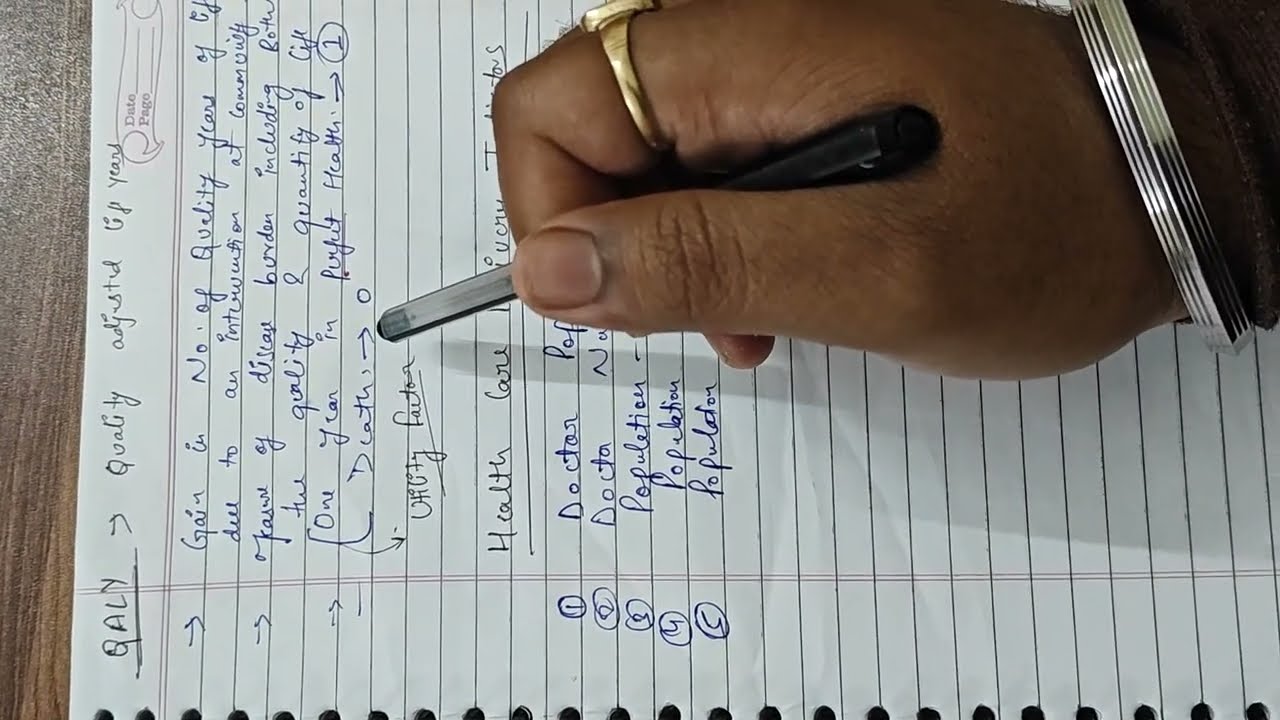 Date
Pago
QALY → Quality adjusted lif years
→ Gain in No. of Quelity years of lif
due to an intervention at community
→ measure of diseas burden including Both
the quality & quantity of lif
→ One year in perfect Health. → 1
- Death. → 0
Utility factor
Health Care
① Doctor Pop
② Docto Nu
③ Populetion -
④ Population
⑤ Populaton